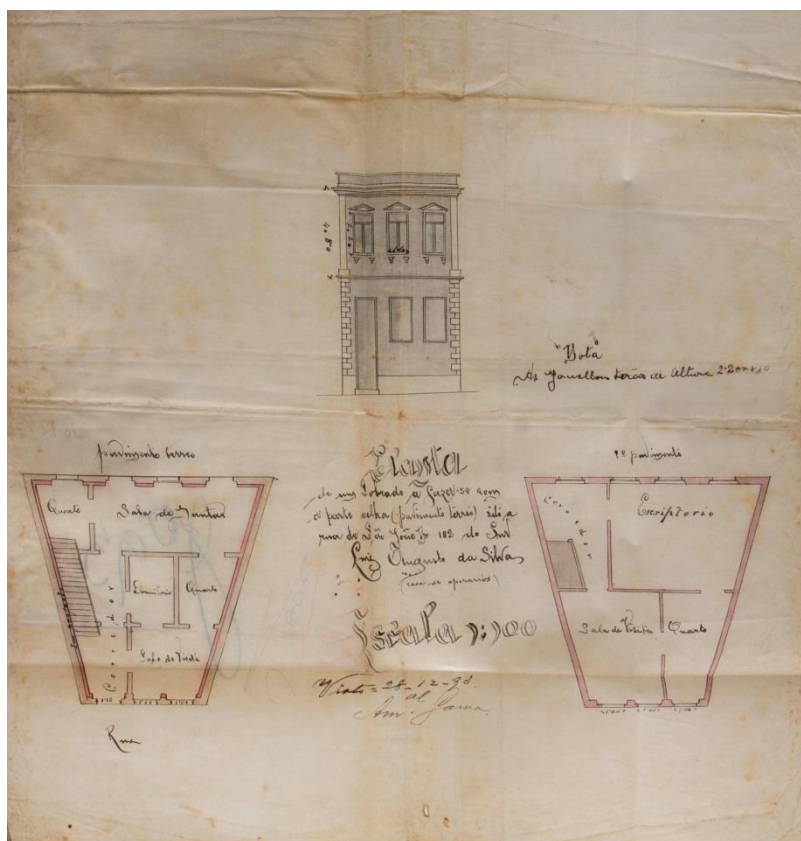 "Nota"
As janellas terão de altura 2.20
pavimento terreo
Quarto
Sala de Jantar
Corredor
Dormitorio
Quarto
Sala de Visita
Rua
Planta
de um Sobrado à fazer-se com
a parte velha (pavimento terreo) sito a
rua de São João Nº 182 do Snr
Luiz Augusto da Silva
(casa de operarios)
Escala 1:100
Visto = 28-12-98.
1º pavimento
Corredor
Escriptorio
Sala de Visita
Quarto